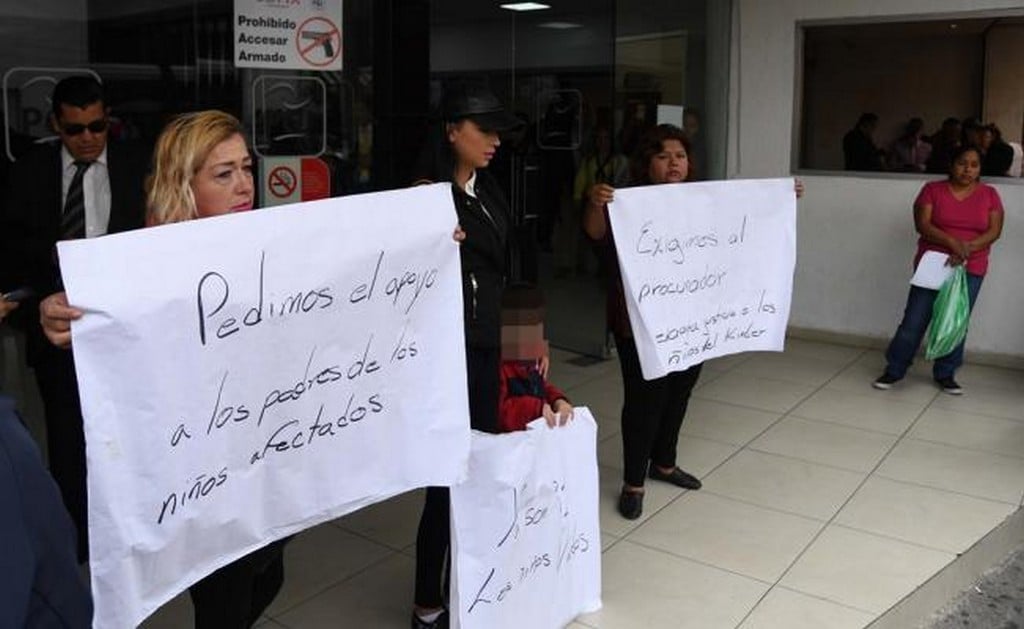 Prohibido
Accesar
Armado
Pedimos el apoyo
a los padres de los
niños afectados
Exigimos al
procurador
justicia a los
niños del Kinder
Los niños